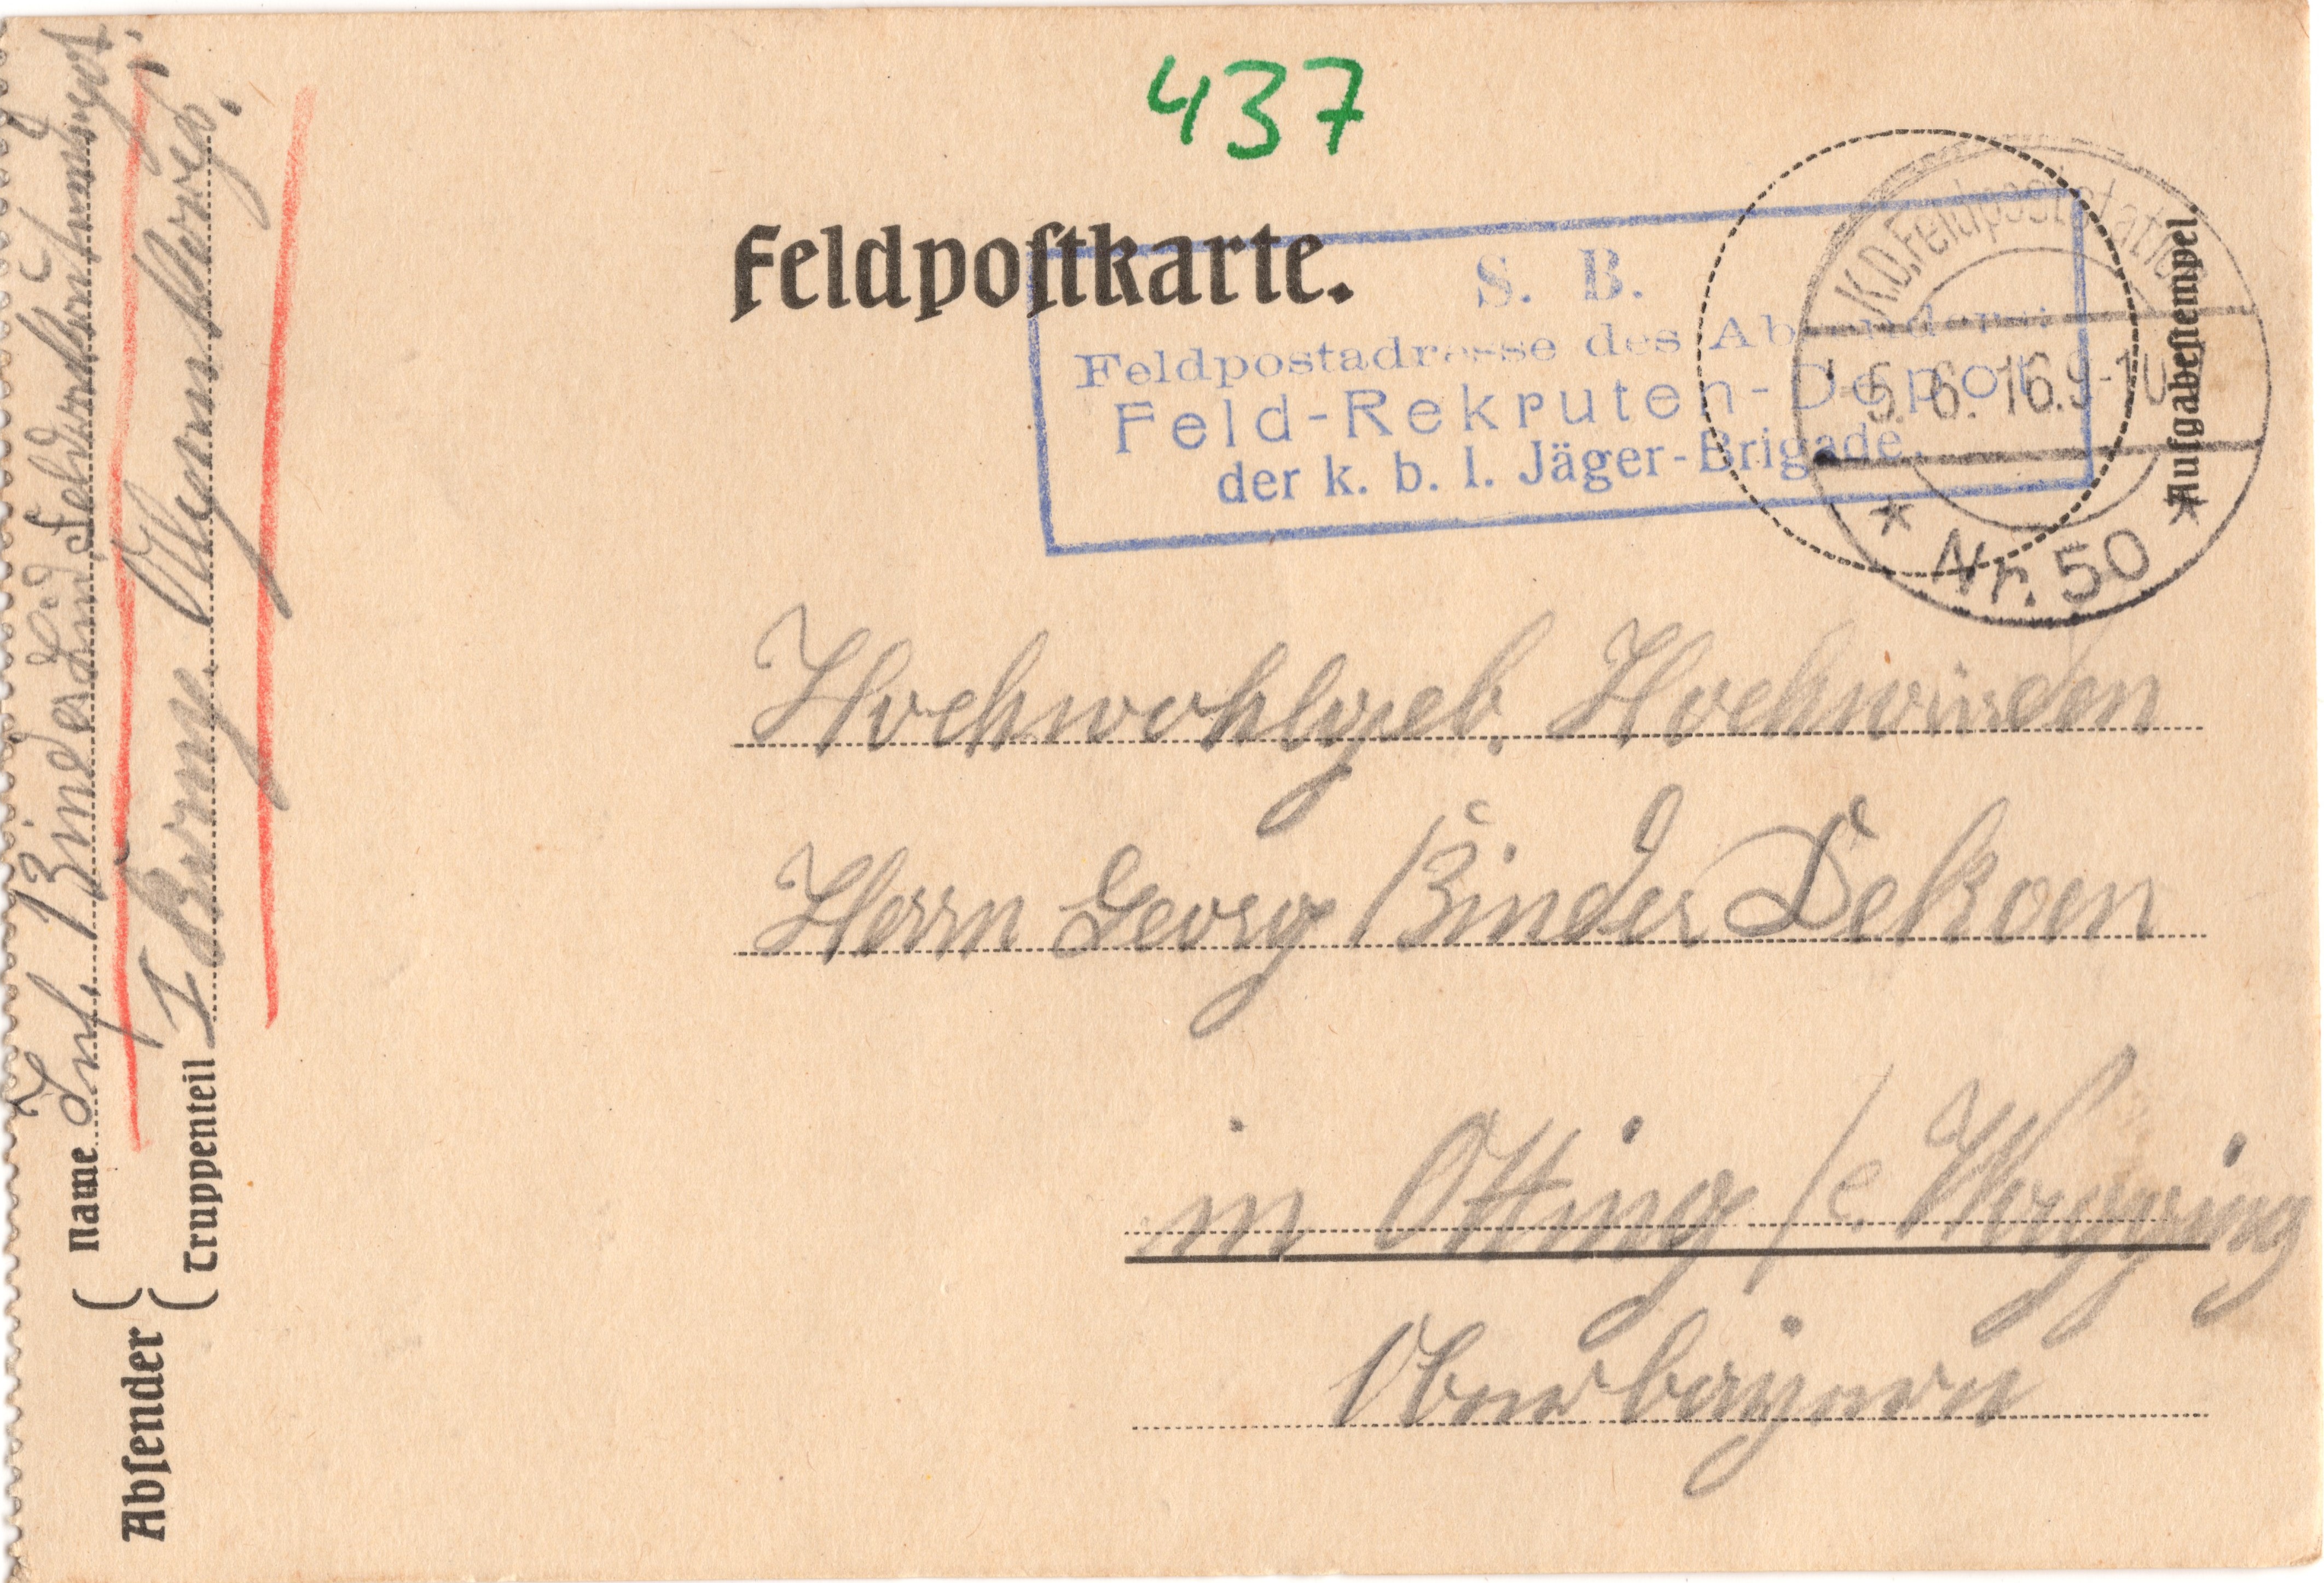 437
Feldpostkarte.
S. B.
Feldpostadresse des Absenders:
Feld-Rekruten-Depot
der k. b. 1. Jäger-Brigade.
K.D. Feldpoststation
5. 6. 16. 9-10
* Nr. 50 *
Aufgabestempel.
Hochwohlgeb. Hochwürden
Herrn Georg Binder Dekan
in Otting /
Oberbayern
Absender
Name Inf. Binder
Truppenteil I